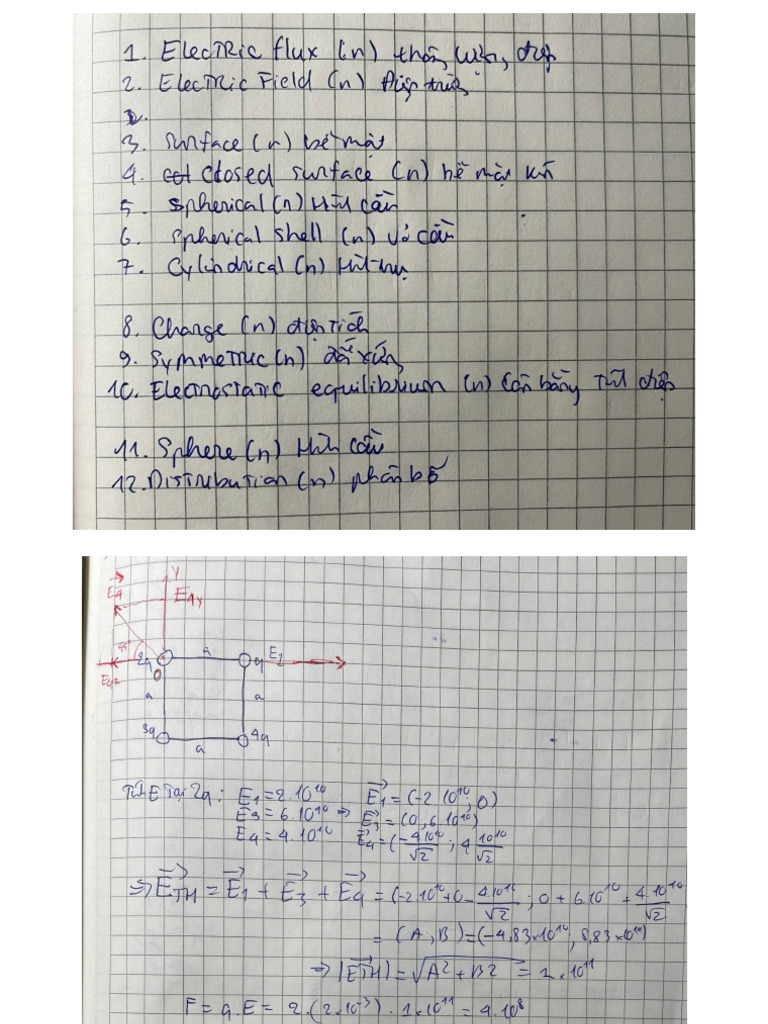 1. Electric flux (n) thông lượng điện
2. Electric Field (n) Điện trường
2.
3. Surface (n) bề mặt
4. closed surface (n) bề mặt kín
5. Spherical (n) Hình cầu
6. Spherical shell (n) vỏ cầu
7. Cylindrical (n) Hình trụ
8. Charge (n) điện tích
9. Symmetric (n) đối xứng
10. Electrostatic equilibrium (n) Cân bằng tĩnh điện
11. Sphere (n) Hình cầu
12. Distribution (n) phân bố
Y
E4 E4y
45° 2q a q E2
E4x 0
a a
3q a 4q
Tính E tại 2q: E1 = 2.10^10 E1 = (-2 10^10; 0)
E3 = 6.10^10 => E3 = (0, 6 10^10)
E4 = 4.10^10 E4 = (-4 10^10/√2; 4 10^10/√2
=> ETH = E1 + E3 + E4 = (-2 10^10 + 0 - 4.10^10/√2; 0 + 6.10^10 + 4.10^10/√2
= (A, B) = (-4,83×10^10, 8,83×10^10)
=> |ETH| = √A² + B² = 1×10^11
F = q.E = 2.(2×10^-3).1×10^11 = 4.10^8